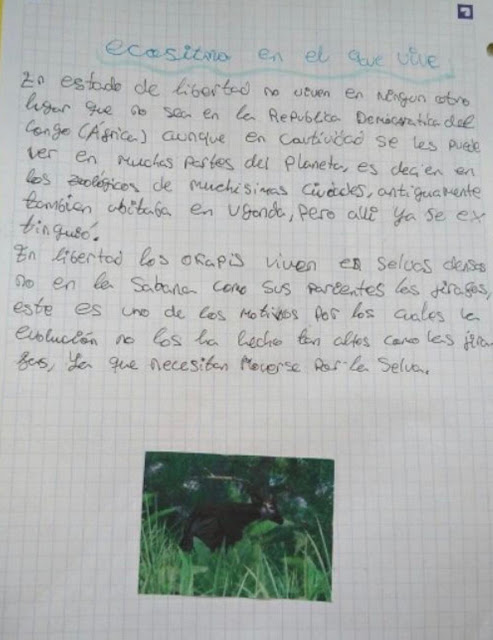 ecositma en el que vive
En estado de libertad no viven en ningun otro
lugar que no sea en la Republica Democratica del
Congo (Africa) aunque en cautividad se les puede
ver en muchas partes del planeta, es decir en
los zoológicos de muchisimas ciudades, antiguamente
tambien abitaba en Uganda, pero alli ya se ex
tinguió.
En libertad los okapis viven en selvas densas
no en la sabana como sus parientes las jirafas,
este es uno de los motivos por los cuales la
evolución no los ha hecho tan altos como las jira
fas, ya que necesitan moverse por la selva.